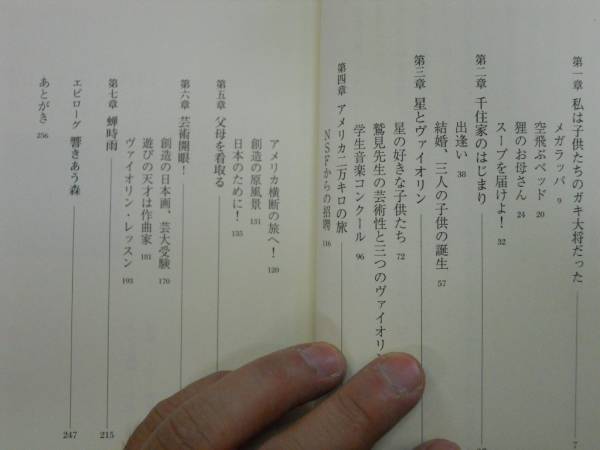 第一章 私は子供たちのガキ大将だった 7
メガラッパ 9
空飛ぶベッド 20
狸のお母さん 24
スープを届けよ! 32
第二章 千住家のはじまり
出逢い 38
結婚、三人の子供の誕生 57
第三章 星とヴァイオリン
星の好きな子供たち 72
鷲見先生の芸術性と三つのヴァイオリン
学生音楽コンクール 96
第四章 アメリカ二万キロの旅
NSFからの招聘 116
アメリカ横断の旅へ! 120
創造の原風景 131
日本のために! 135
第五章 父母を看取る
第六章 芸術開眼!
創造の日本画、芸大受験 170
遊びの天才は作曲家 181
ヴァイオリン・レッスン 193
第七章 蝉時雨 215
エピローグ 響きあう森 247
あとがき 256